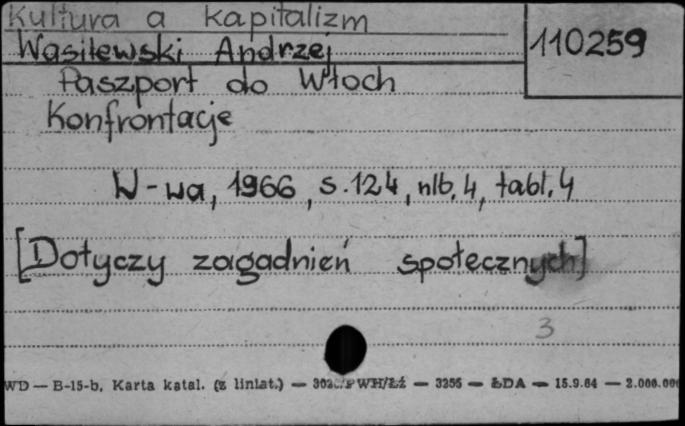 Kultura a kapitalizm
Wasilewski Andrzej
110259
Paszport do Włoch
Konfrontacje
W-wa, 1966, s. 124, nlb. 4, tabl. 4
[Dotyczy zagadnień społecznych]
3
WD — B-15-b, Karta katal. (z liniat.) — PWH/Łź — 3255 — ŁDA — 15.9.64 — 2.000.000